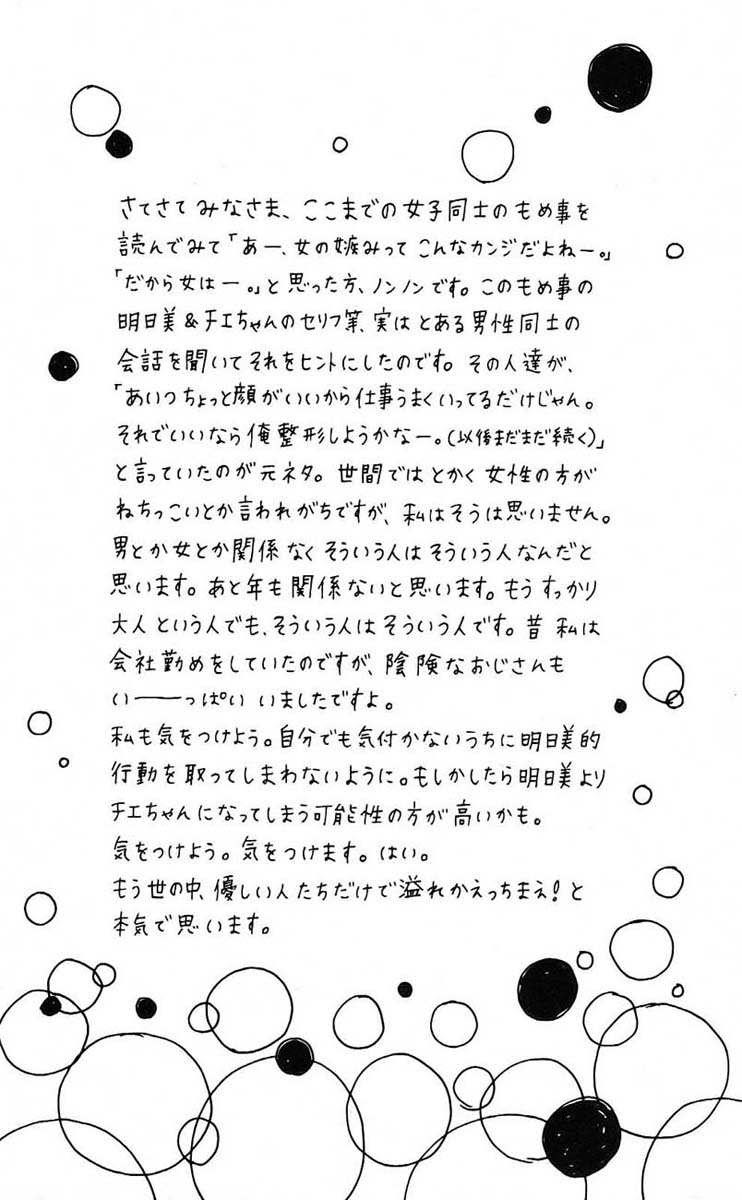 さてさて みなさま、ここまでの女子同士のもめ事を
読んでみて「あー、女の嫉みって こんなカンジだよねー。」
「だから女はー。」と思った方、ノンノンです。このもめ事の
明日美&チエちゃんのセリフ等、実はとある男性同士の
会話を聞いてそれをヒントにしたのです。その人達が、
「あいつちょっと顔がいいから仕事うまくいってるだけじゃん。
それでいいなら俺整形しようかなー。(以後まだまだ続く)」
と言っていたのが元ネタ。世間ではとかく女性の方が
ねちっこいとか言われがちですが、私はそうは思いません。
男とか女とか関係なくそういう人はそういう人なんだと
思います。あと年も関係ないと思います。もうすっかり
大人という人でも、そういう人はそういう人です。昔 私は
会社勤めをしていたのですが、陰険なおじさんも
い――っぱい いましたですよ。
私も気をつけよう。自分でも気付かないうちに明日美的
行動を取ってしまわないように。もしかしたら明日美より
チエちゃんになってしまう可能性の方が高いかも。
気をつけよう。気をつけます。はい。
もう世の中、優しい人たちだけで溢れかえっちまえ!と
本気で思います。